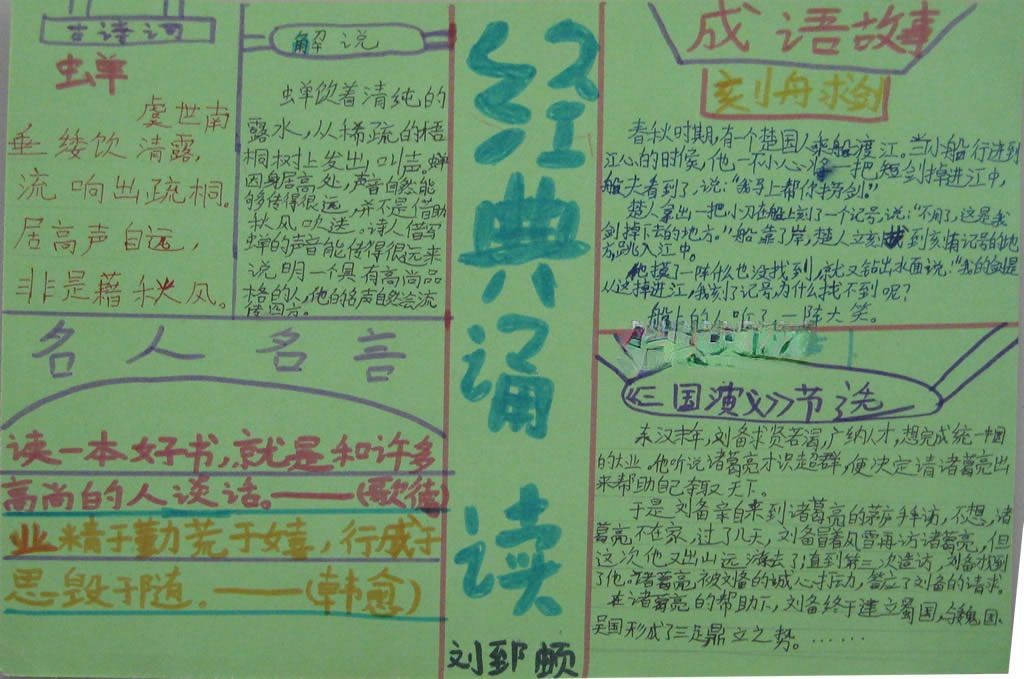 古诗词
蝉
虞世南
垂緌饮清露，
流响出疏桐。
居高声自远，
非是藉秋风。
解说
蝉饮着清纯的
露水，从稀疏的梧
桐树上发出叫声。蝉
因身居高处，声音自然能
够传得很远，并不是借助
秋风吹送。诗人借写
蝉的声音能传得很远来
说明一个具有高尚品
格的人，他的名声自然会流
传四方。
名人名言
读一本好书，就是和许多
高尚的人谈话。——（歌德）
业精于勤荒于嬉，行成于
思毁于随。——（韩愈）
经典诵读
刘郅颀
成语故事
刻舟求剑
春秋时期，有个楚国人乘船渡江。当小船行进到
江心的时候，他一不小心将一把短剑掉进江中，
船夫看到了，说：“我马上帮你捞剑。”
楚人拿出一把小刀在船上刻了一个记号，说：“不用了，这是我
剑掉下去的地方。”船靠了岸，楚人立刻找到刻有记号的地
方跳入江中。
他摸了一阵什么也没找到，就又钻出水面说：“我的剑是
从这掉进江，我刻了记号，为什么找不到呢？
船上的人听了一阵大笑。
《三国演义》节选
东汉末年，刘备求贤若渴，广纳人才，想完成统一中国
的大业。他听说诸葛亮才识超群，便决定请诸葛亮出
来帮助自己争取天下。
于是刘备亲自来到诸葛亮的茅庐拜访，不想，诸
葛亮不在家，过了几天，刘备冒着风雪再访诸葛亮，但
这次他又出山远游去了；直到第三次造访，刘备找到
了他。诸葛亮被刘备的诚心打动，答应了刘备的请求。
在诸葛亮的帮助下，刘备终于建立蜀国，与魏国、
吴国形成了三足鼎立之势。……